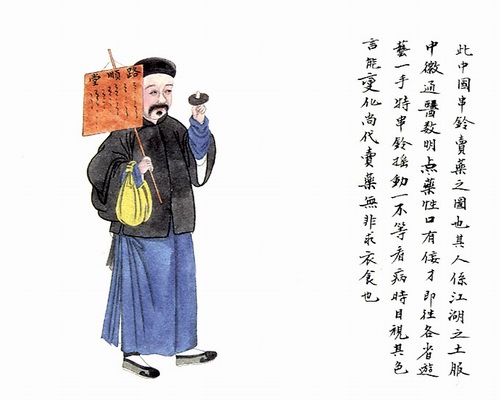 此中國串鈴賣藥之圖也其人係江湖之士服
中徽通醫数明点藥性口有倿才即往各省遊
藝一手持串鈴搖動一不等看病時目視其色
言能變化尚代賣藥無非求衣食也
路順堂